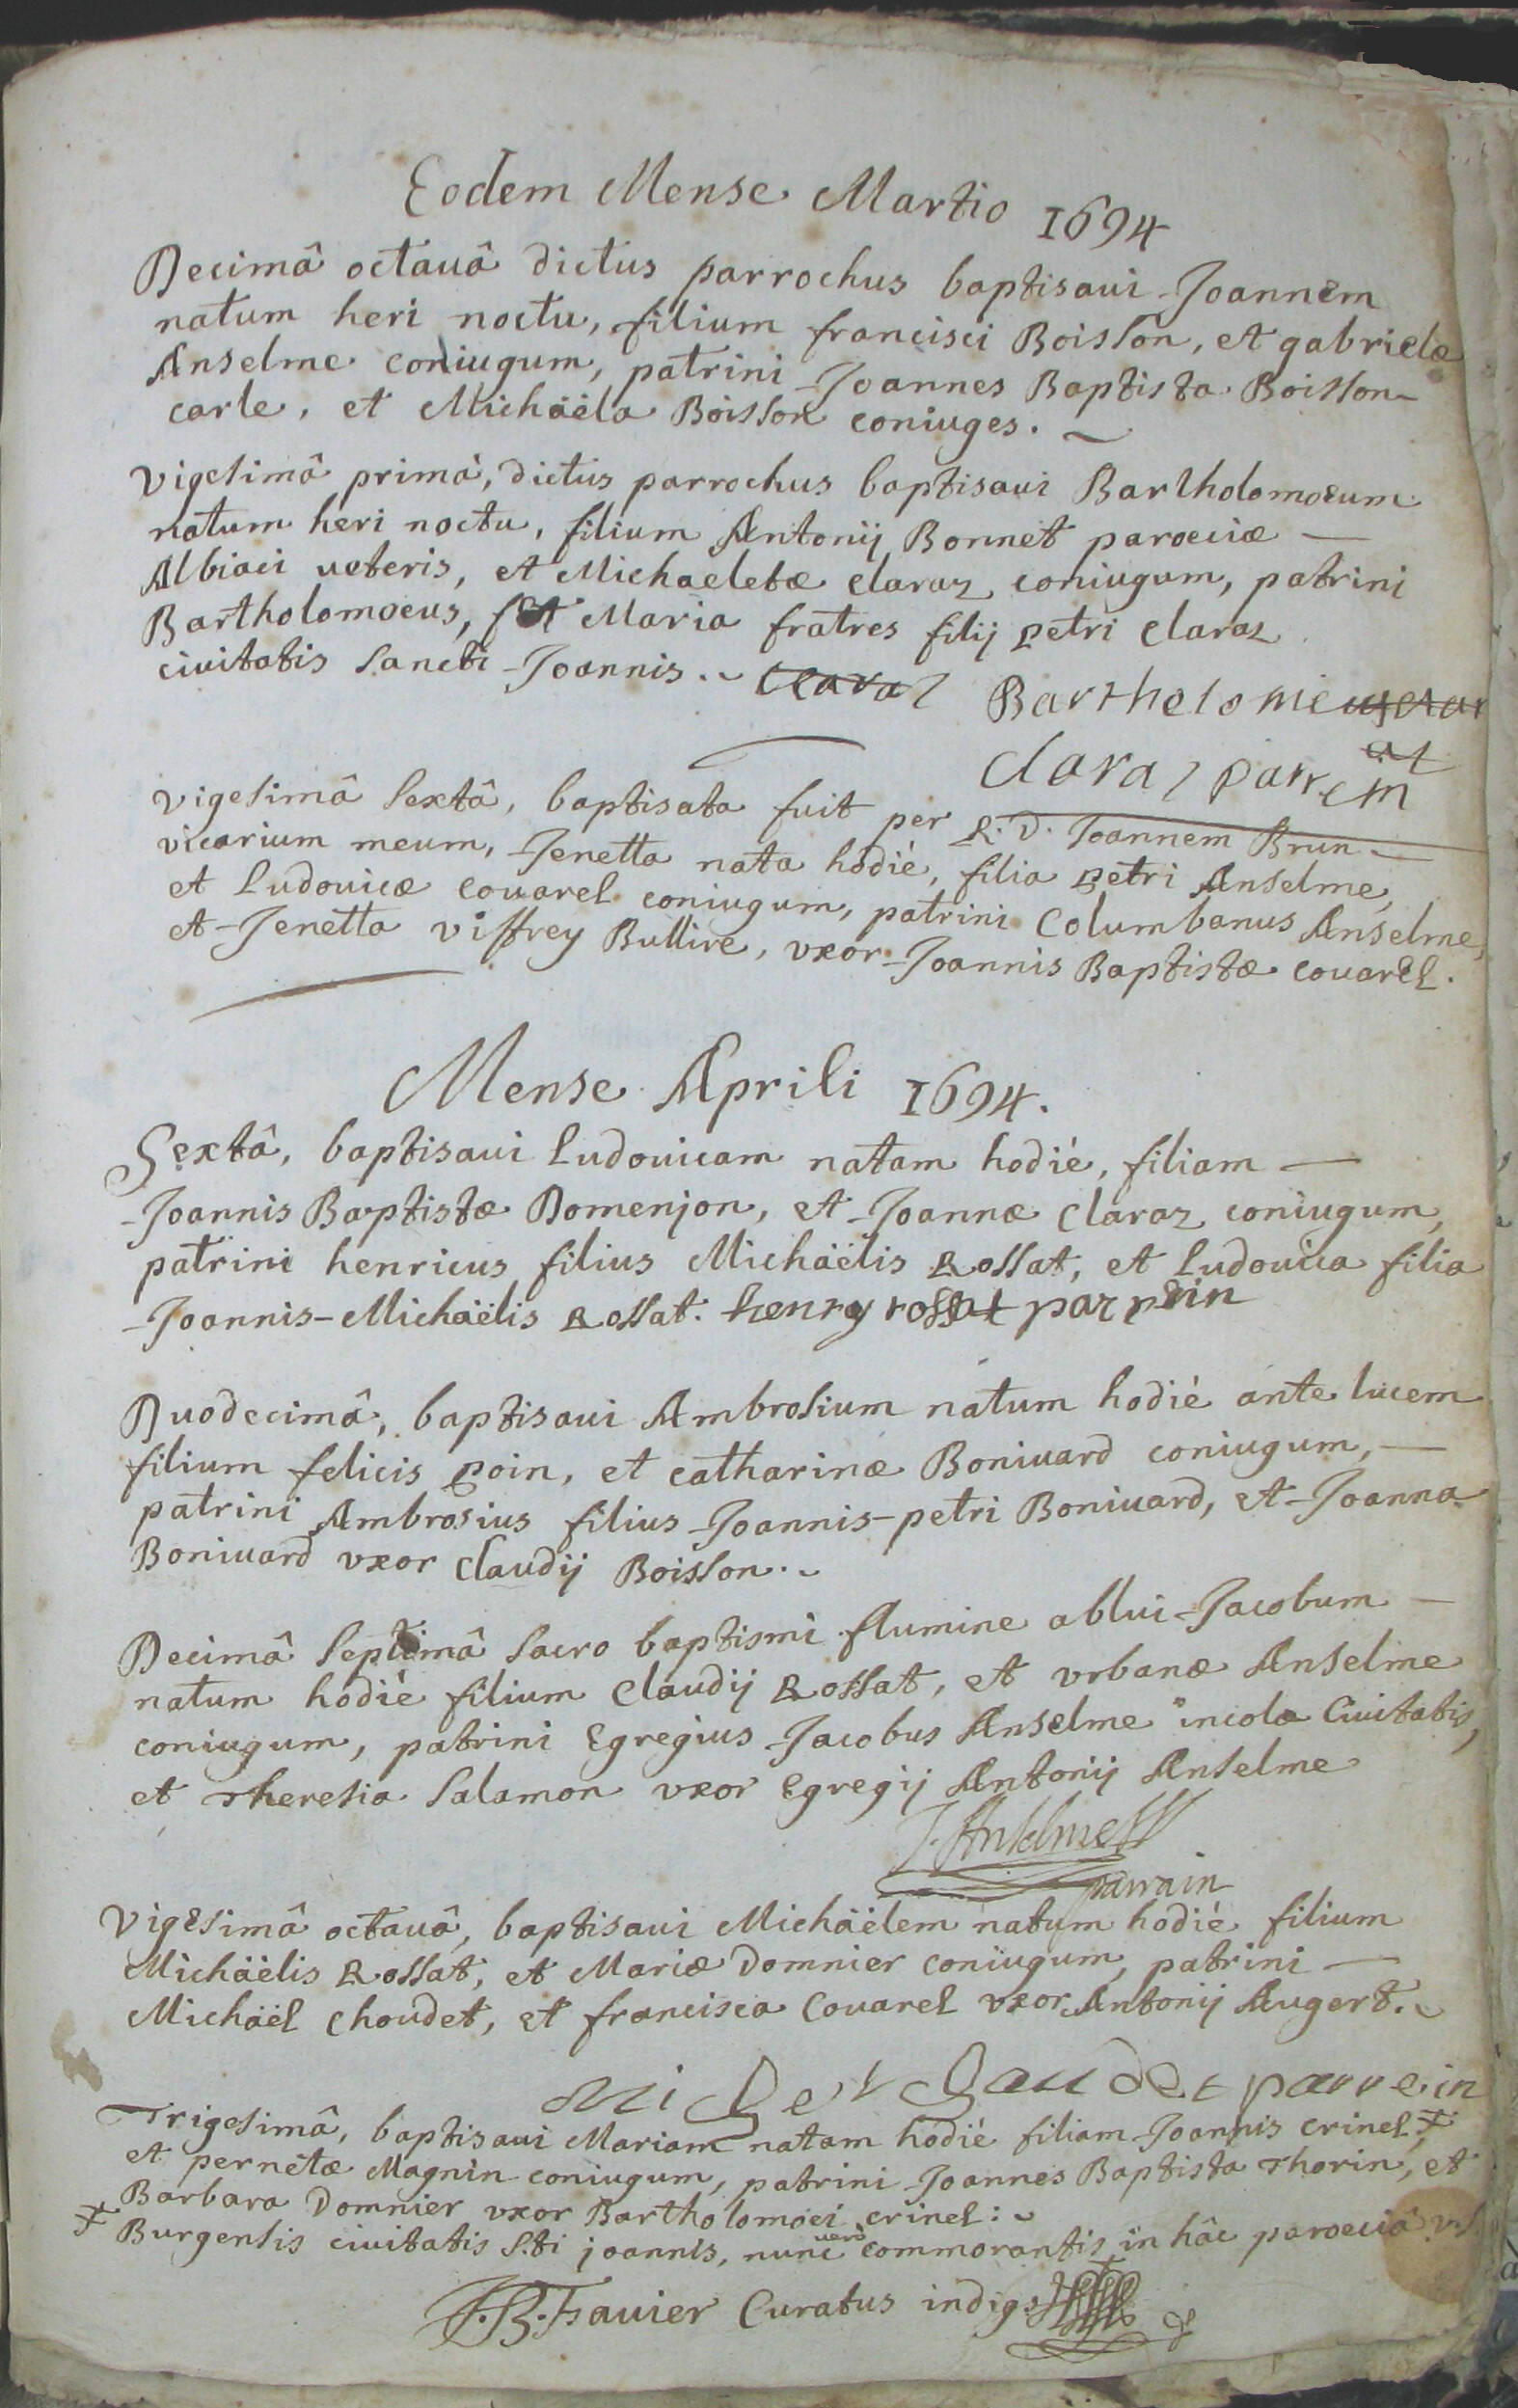 Eodem Mense Martio 1694
Decimâ octauâ dictus parrochus baptisaui Joannem
natum heri noctu, filium francisci Boisson, et gabrielæ
Anselme coniugum, patrini Joannes Baptista Boisson
carle, et Michäela Boisson coniuges.
Vigesimâ primâ, dictus parrochus baptisaui Bartholomoeum
natum heri noctu, filium Antonij Bonnet paroeciæ
Albiaci ueteris, et Michaeletæ claraz coniugum, patrini
Bartholomoeus, et Maria fratres filij petri claraz
ciuitatis Sancti Joannis. Claraz Barthelomie
Claraz parrein
Vigesimâ Sextâ, baptisata fuit per R. D. Joannem Brun
vicarium meum, Jenetta nata hodiè, filia petri Anselme,
et Ludouicæ couarel coniugum, patrini Columbanus Anselme,
et Jenetta viffrey Bullire, vxor Joannis Baptistæ couarel.
Mense Aprili 1694.
Sextâ, baptisaui Ludouicam natam hodiè, filiam
Joannis Baptistæ Domenjon, et Joannæ claraz coniugum,
patrini henricus filius Michäëlis Rossat, et Ludouica filia
Joannis-Michäëlis Rossat. henry rossat parrein
Duodecimâ, baptisaui Ambrosium natum hodiè ante lucem
filium felicis poin, et catharinæ Boniuard coniugum,
patrini Ambrosius filius Joannis-petri Boniuard, et Joanna
Boniuard vxor claudij Boisson.
Decimâ Septimâ Sacro baptismi flumine ablui Jacobum
natum hodiè filium claudij Rossat, et vrbanæ Anselme
coniugum, patrini Egregius Jacobus Anselme incola Ciuitatis,
et Theresia Salamon vxor Egregij Antonij Anselme
J. Anselme
parrain
Vigesimâ octauâ, baptisaui Michäëlem natum hodiè filium
Michäëlis Rossat, et Mariæ Domnier coniugum, patrini
Michäël choudet, et francisca Couarel vxor Antonij Augert.
parrein
Trigesimâ, baptisaui Mariam natam hodiè filiam Joannis crinel, ǂ
et pernetæ Magnin coniugum, patrini Joannes Baptista Thorin, et
Barbara Domnier vxor Bartholomoei crinel:
ǂ Burgensis ciuitatis S.ti joannis, nunc uerò commorantis in hâc paroeciâ
J.B. Fauier Curatus indig.s